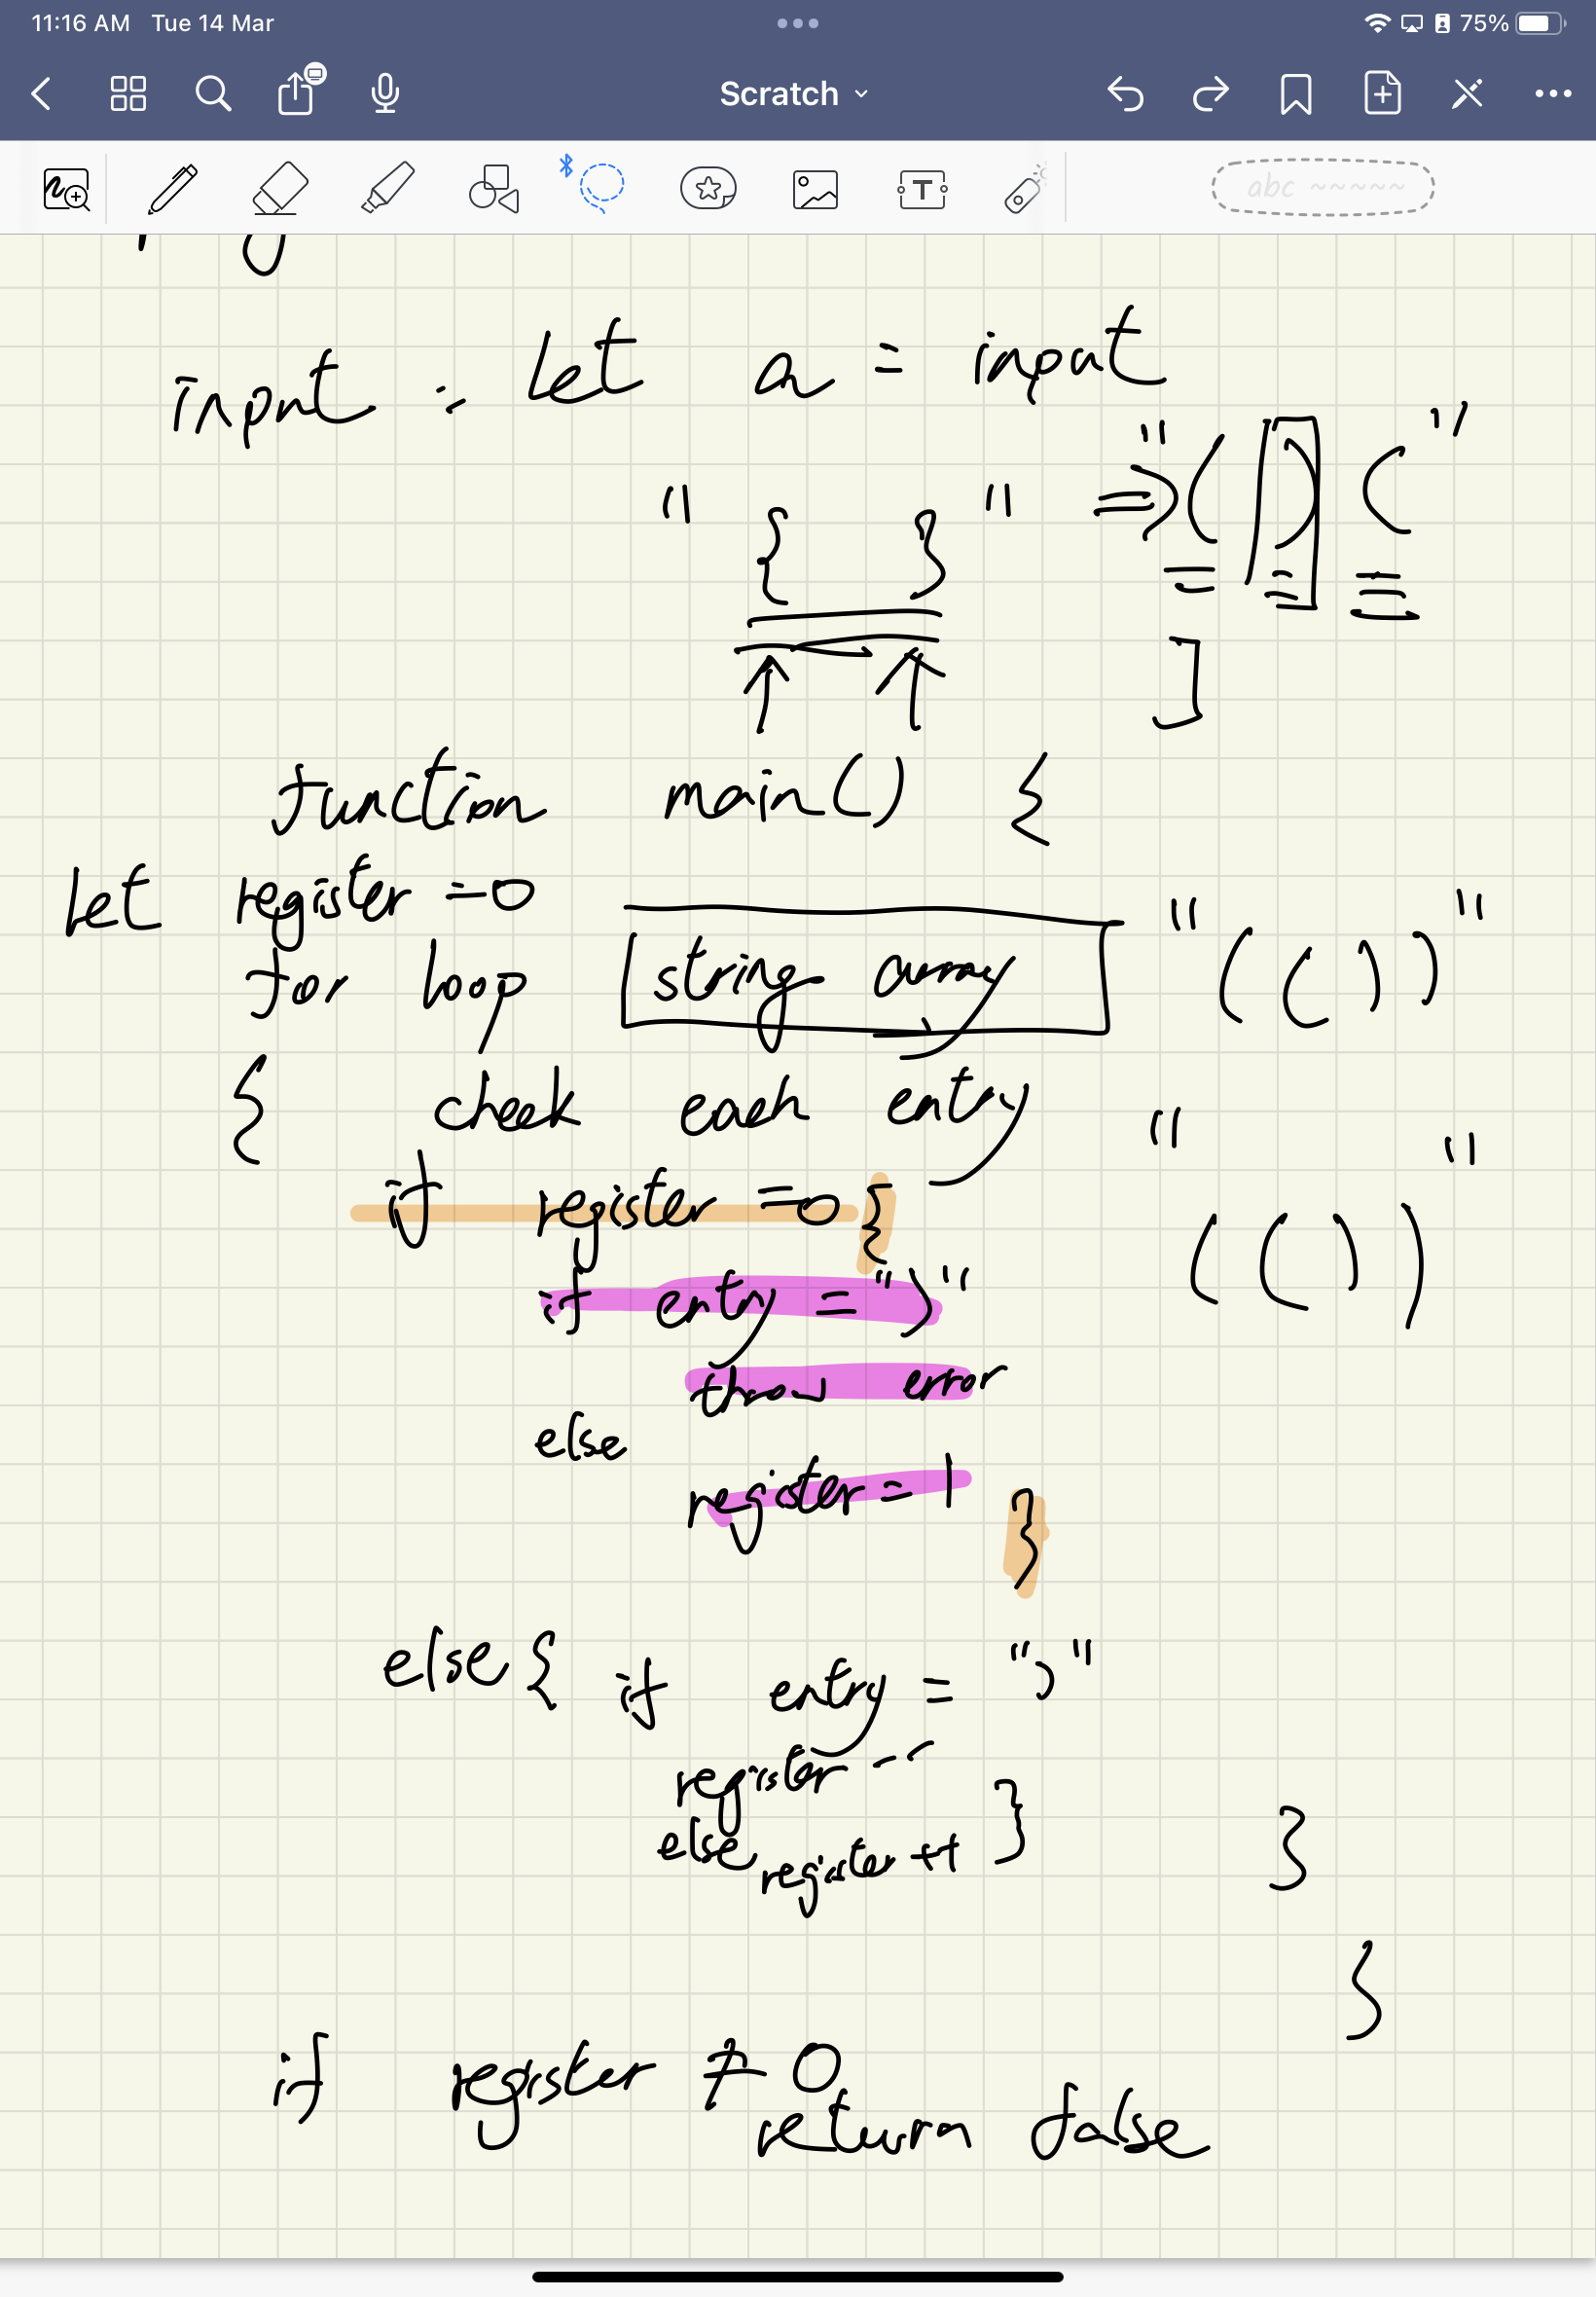 11:16 AM Tue 14 Mar
75%
Scratch
T
abc
input : let a = input
"{ }" => "( ) ("
]
function main() {
let register =0
for loop string array "(())"
{ check each entry
if register =0 { "(())"
if entry =")"
throw error
else
register = 1
}
else { if entry = ")"
register --
else register ++ }
}
}
if register ≠ 0
return false